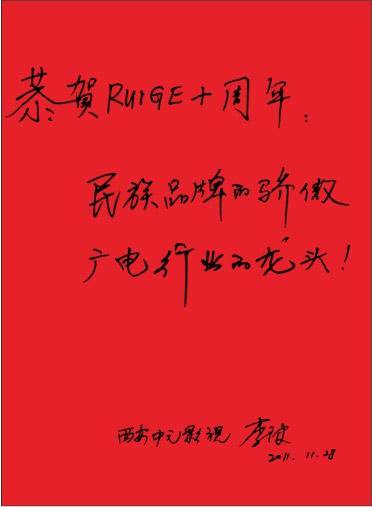 恭贺RUIGE十周年：
民族品牌的骄傲
广电行业的龙头！
西安中元影视 李
2011.11.28